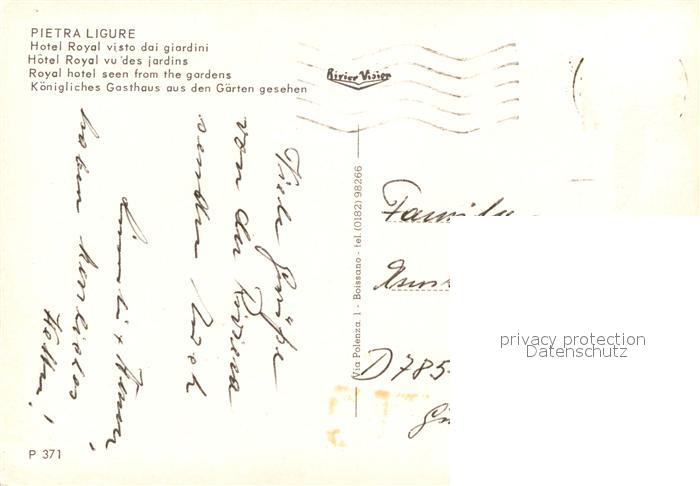 PIETRA LIGURE
Hotel Royal visto dai giardini
Hôtel Royal vu des jardins
Royal hotel seen from the gardens
Königliches Gasthaus aus den Gärten gesehen
Rivier Vision
Viele Grüße
von der Riviera
senden Euch
haben herrliches
Wetter!
Via Polenza, 1 - Boissano - tel. (0182) 98266
Familie
D 785
privacy protection
Datenschutz
P 371